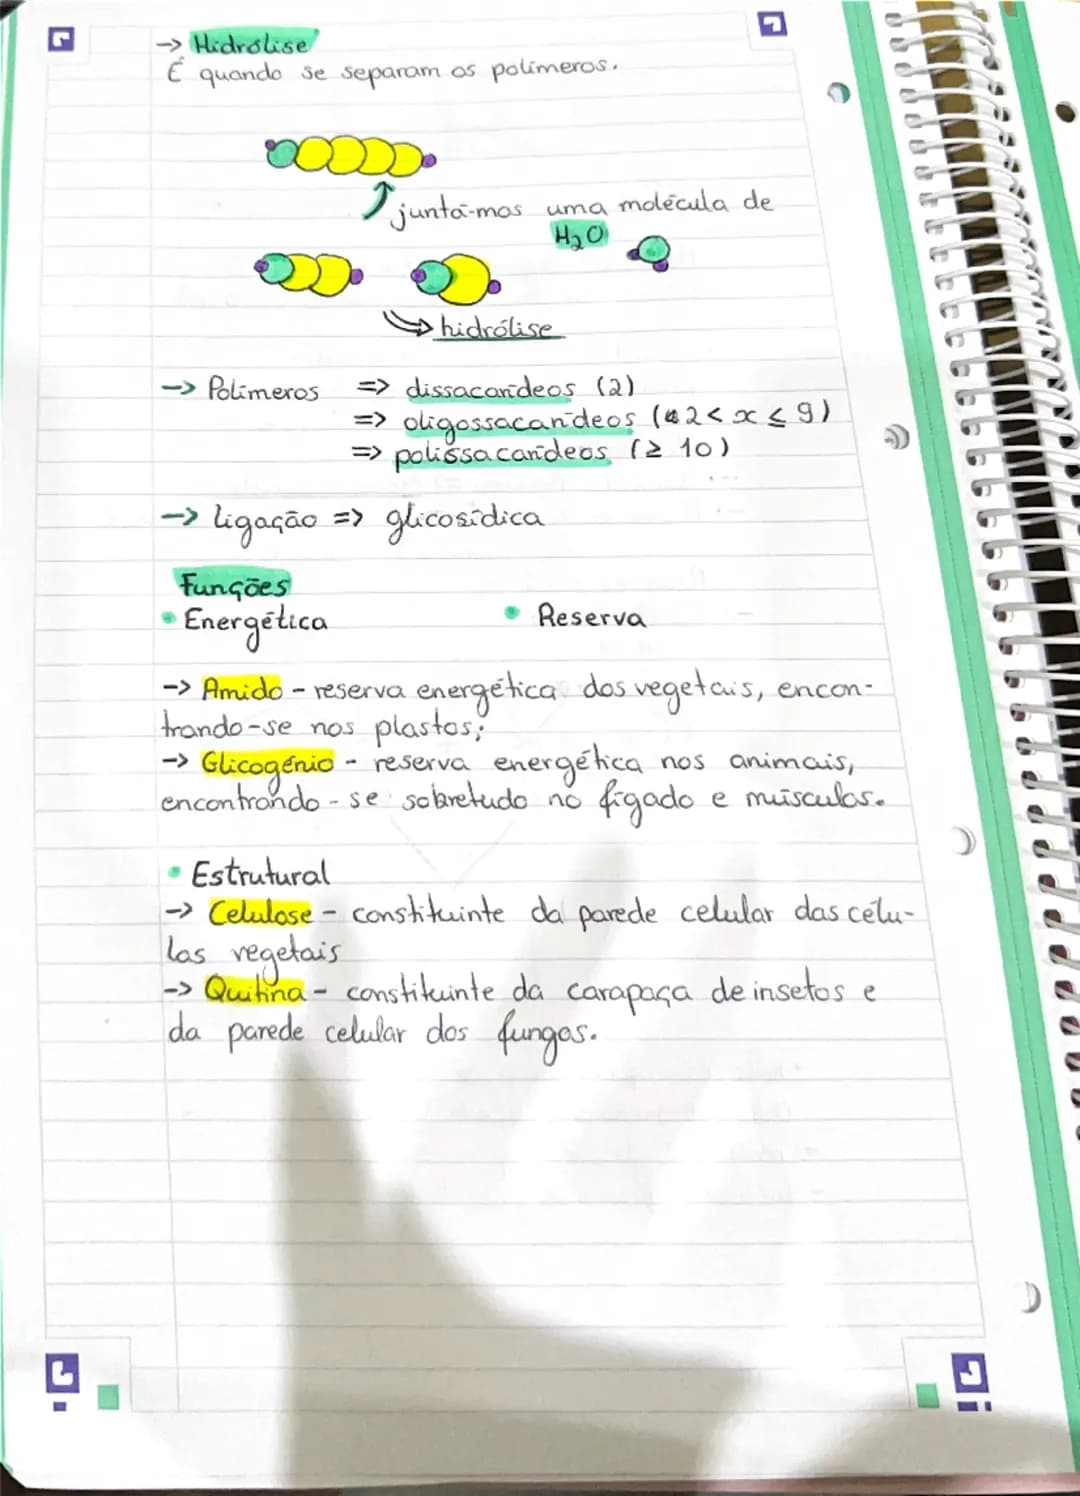 -> Hidrólise
É quando se separam os polímeros.
juntá-mos uma molécula de
H₂O
hidrólise
-> Polímeros => dissacarídeos (2)
=> oligossacarídeos (2 < x ≤ 9)
=> polissacarídeos (≥ 10)
-> ligação => glicosídica
Funções
• Energética • Reserva
-> Amido - reserva energética dos vegetais, encon-
trando-se nos plastos;
-> Glicogénio - reserva energética nos animais,
encontrando-se sobretudo no fígado e músculos.
• Estrutural
-> Celulose - constituinte da parede celular das célu-
las vegetais
-> Quitina - constituinte da carapaça de insetos e
da parede celular dos fungos.